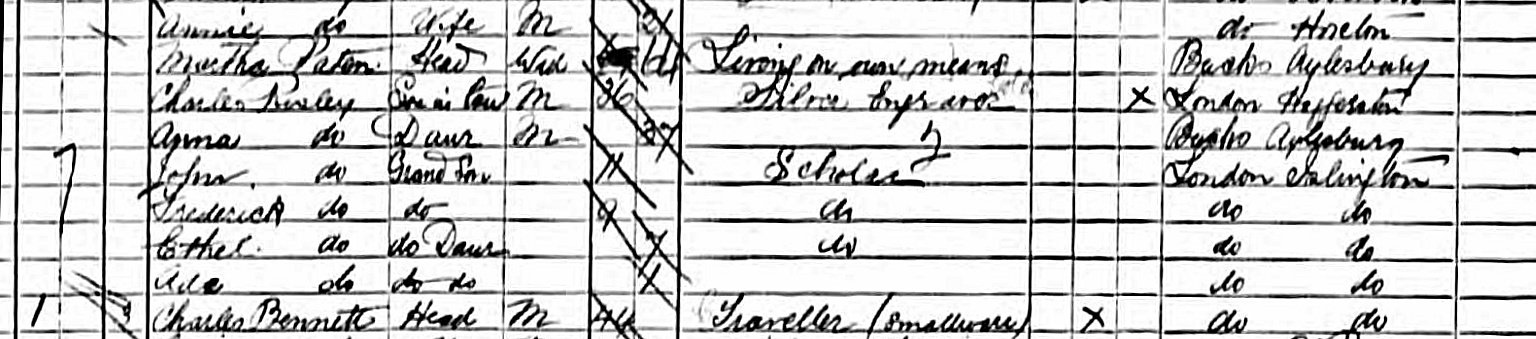 Annie do Wife M do Hoxton
Martha Paten Head Wid 64 Living on own means Bucks Aylesbury
Charles Son in law M 36 Silver Engraver X London
Anna do Daur M 37 Bucks Aylesbury
7 John do Grand Son 11 Scholar London Islington
Frederick do do 9 do do do
Ethel do do Daur 7 do do do
Ada do do do 4 do do
1 Charles Bennett Head M 44 Traveller (Smallware) X do do